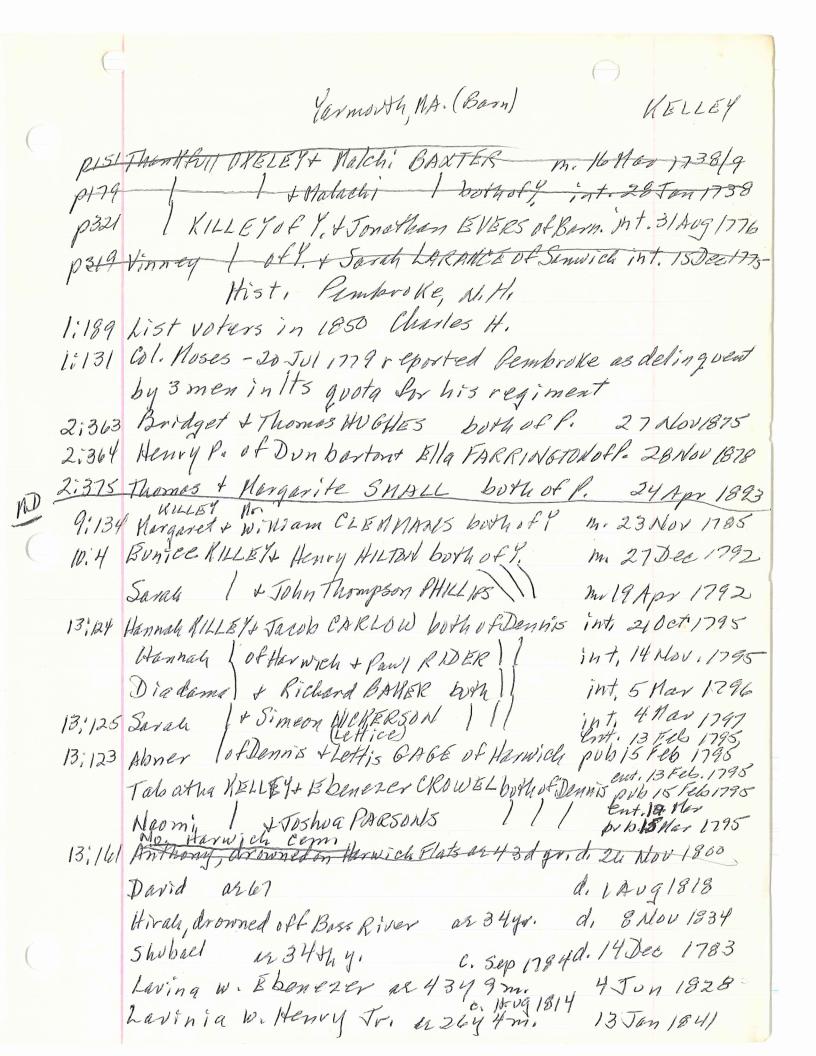 Yarmouth, MA. (Barn) KELLEY
p151 Thankfull OKELEY + Malchi BAXTER m. 16 Mar 1738/9
p179 | | + Malachi | both of Y. int. 28 Jan 1738
p321 | KILLEY of Y. + Jonathan EVERS of Barn. int. 31 Aug 1776
p319 Vinney | of Y. + Sarah LARANCE of Sanwich int. 15 Dec 1775
Hist. Pembroke, N.H.
1:189 List voters in 1850 Charles H.
1:131 Col. Moses - 20 Jul 1779 reported Pembroke as delinquent
by 3 men in its quota for his regiment
2:363 Bridget + Thomas HUGHES both of P. 27 Nov 1875
2:364 Henry P. of Dunbarton + Ella FARRINGTON of P. 28 Nov 1878
2:375 Thomas + Margarite SMALL both of P. 24 Apr 1893
MD
KILLEY Mr.
9:134 Margaret + William CLEMMANS both of Y m. 23 Nov 1785
10:4 Eunice KILLEY + Henry HILTON both of Y. m. 27 Dec 1792
Sarah | + John Thompson PHILLIPS \ \ \ m. 19 Apr 1792
13:124 Hannah KILLEY + Jacob CARLOW both of Dennis int. 21 Oct 1795
Hannah | of Harwich + Pawl RIDER | | int. 14 Nov. 1795
Diadama | + Richard BAKER both | | int. 5 Mar 1796
13:125 Sarah | + Simeon NICKERSON | | | int. 4 Mar 1797
(Lettice) ent. 13 Feb 1795
13:123 Abner | of Dennis + Lettis GAGE of Harwich pub 15 Feb 1795
ent. 13 Feb. 1795
Tabatha KELLEY + Ebenezer CROWEL both of Dennis pub 15 Feb 1795
ent. Mar
Naomi | + Joshua PARSONS | | | pub 15 Mar 1795
No. Harwich Cem
13:161 Anthony, drowned on Harwich Flats ae 43d yr. d. 26 Nov 1800
David ae 67 d. 1 Aug 1818
Hirah, drowned off Bass River ae 34 yr. d. 8 Nov 1834
Shubael ae 34th y. c. Sep 1784 d. 14 Dec 1783
Lavina w. Ebenezer ae 43 y 9 m. 4 Jun 1828
c. Aug 1814
Lavinia w. Henry Jr. ae 26 y 4 m. 13 Jan 1841